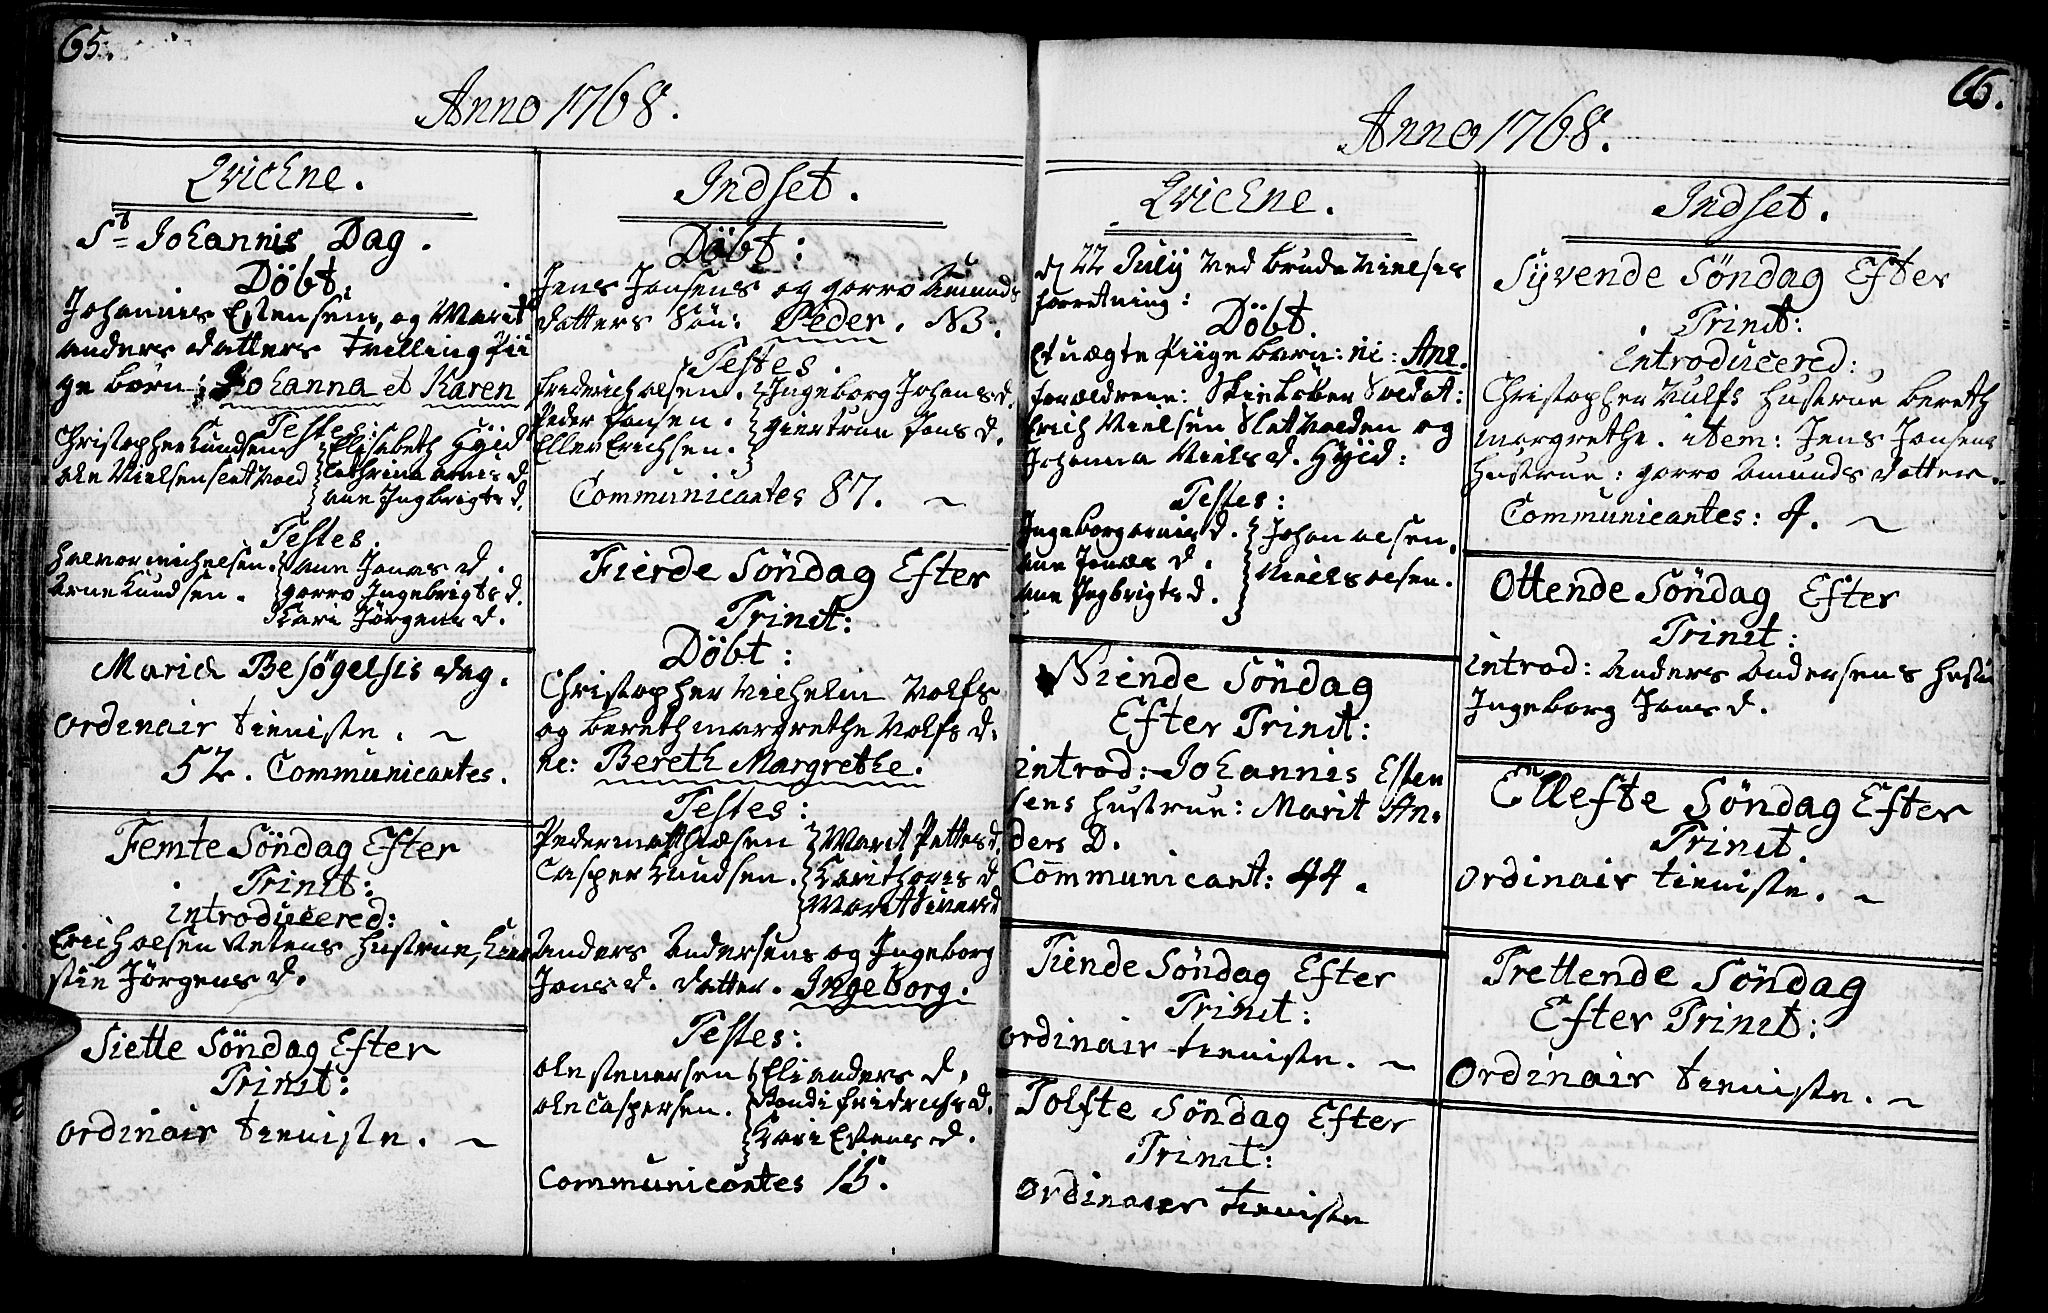 65.
Anno 1768.
Qvichne.
St Johannis Dag.
Döbt.
Johannis Estensens, og Marit
anders datters tvilling pii
ge börn: Johanna et Karen
Testes:
Christopher Knudsen
ole Nielsen
Elisabeth Hyid
Cathrina arnis d
ane Ingbrigts d.
Testes.
Halvor michelsen.
Arne Knudsen.
ane Jonas d.
gorro Ingebrigts d.
Kari Jörgens d.
Mariæ Besøgelsis dag.
Ordinair tieniste. ~
52. Communicantes.
Femte Söndag Efter
Trinit:
introducered:
Erich olsen Hustrue,
stin Jörgens d.
Siette Söndag Efter
Trinit:
Ordinair tieniste. ~
Indset.
Döbt:
Jens Jonsens og gorro Amunds
datters Sön: Peder. NB.
Testes.
Friderich olsen.
Peder Jonsen.
Eller Erichsen.
Ingeborg Johans d.
giertrue Jons d.
Communicantes 87. ~
Fierde Söndag Efter
Trinit:
Döbt:
Christopher Vilhelm Volfs
og berethmargrethe Volfs d:
ne: Bereth Margrethe.
Testes:
Peder matthiæsen
Casper Knudsen.
Marit Petters d.
Kari thoris d
Marit Sivers d
Anders Andersens og Ingeborg
Jons d. datter. Ingeborg.
Testes:
ole stenersen
ole Caspersen.
Eli anders d.
Randi fridrichs d.
Kari Estens d.
Communicantes 15.
66.
Anno 1768.
Qvichne.
d 22 July ved brude vielses
forretning:
Döbt.
Et uægte piige barn: ni: Ane.
forældrene: Skielöber Soldat:
Erich Nielsen Sletvolden og
Johanna Niels d. Hyid:
Testes:
Ingeborg arnis d.
ane Jonæs d.
ane Ingbrigts d.
Johan olsen.
Niels olsen.
Niende Söndag
Efter Trinit:
introd: Johannis Esten
sens Hustrue: Marit An-
ders D.
Communicant: 44.
Tiende Söndag Efter
Trinit:
Ordinair tieniste. ~
Tolfte Söndag Efter
Trinit:
Ordinaier tieniste
Indset.
Syvende Söndag Efter
Trinit:
introducered:
Christopher Vulfs Hustrue bereth
margrethe. item: Jens Jonsens
Hustrue: gorro Amunds datter.
Communicantes: 4. ~
Ottende Söndag Efter
Trinit:
introd: Anders Andersens
Ingeborg Jons d.
Ellefte Söndag Efter
Trinit.
Ordinair tieniste. ~
Trettende Söndag
Efter Trinit:
Ordinair tieniste. ~